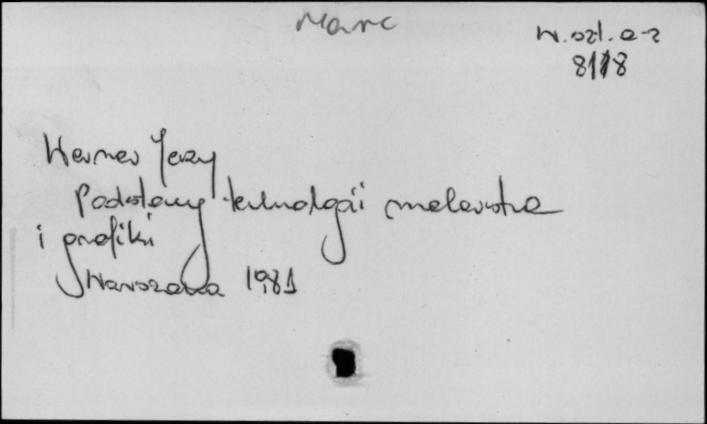 Marc
W.szt. a-2
8118
Werner Jerzy
Podstawy technologii malarstwa
i grafiki
Warszawa 1981